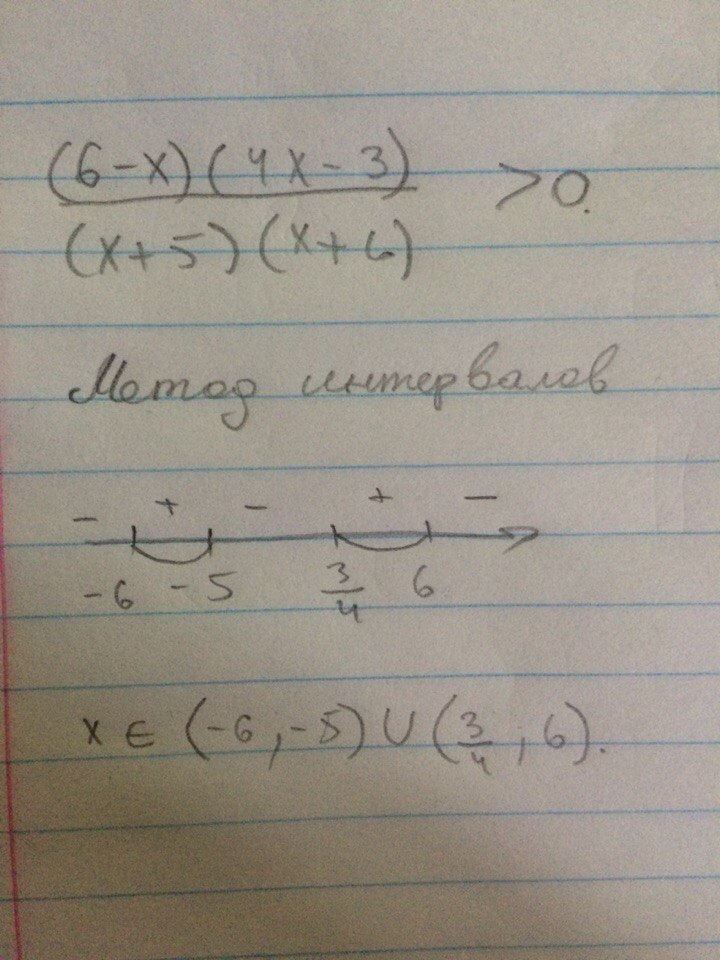 (6-x)(4x-3)
(x+5)(x+6)
>0.
Метод интервалов
- + - + -
-6 -5 3/4 6
x ∈ (-6,-5) ∪ (3/4, 6).